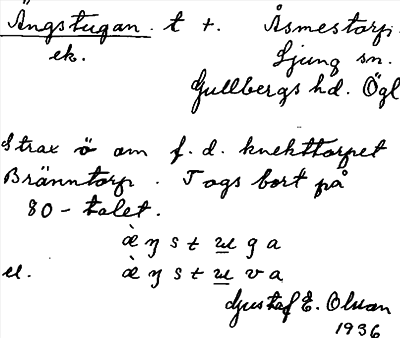 Ängstugan. t t. Åsmestorp.
ek. Ljung sn.
Gullbergs hd. Ögl
Strax ö om f. d. knekttorpet
Bränntorp. Togs bort på
80-talet.
æ̀ ŋ s t u g a
el. æ̀ ŋ s t u v a
Gustaf E. Olsson
1936